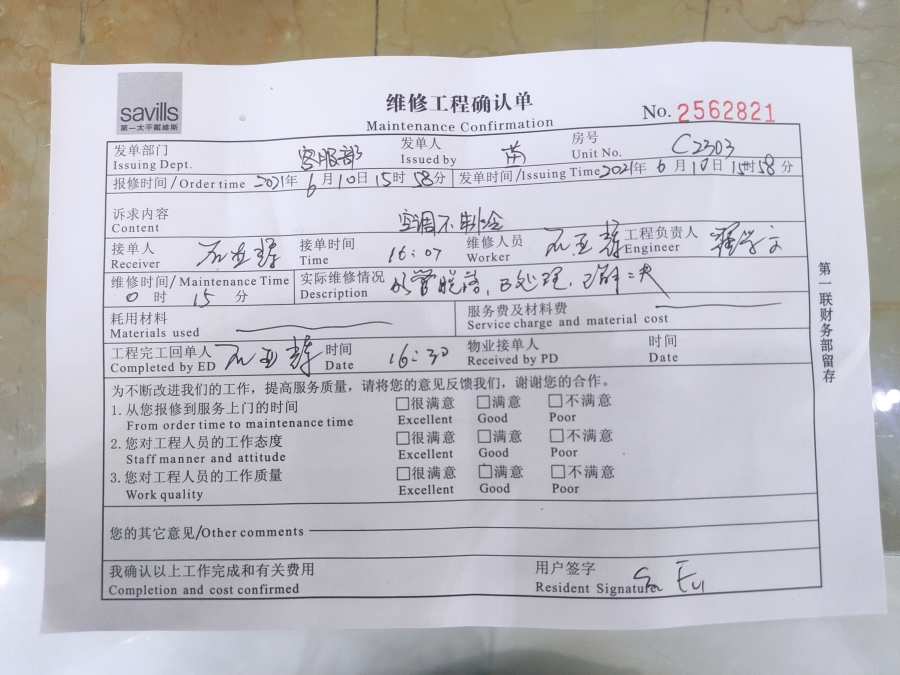 savills
第一太平戴維斯
维修工程确认单
Maintenance Confirmation
No. 2562821
发单部门 客服部 发单人 苗 房号 C2303
Issuing Dept. Issued by Unit No.
报修时间/Order time 2021年 6月10日15时58分 发单时间/Issuing Time 2021年 6月10日15时58分
诉求内容 空调不制冷
Content
接单人 接单时间 16:07 维修人员 工程负责人
Receiver Time Worker Engineer
维修时间/Maintenance Time 实际维修情况 管脱落,已处理,已解决
0时 15分 Description
耗用材料 服务费及材料费
Materials used Service charge and material cost
工程完工回单人 时间 16:30 物业接单人 时间
Completed by ED Date Received by PD Date
为不断改进我们的工作，提高服务质量，请将您的意见反馈我们，谢谢您的合作。
1. 从您报修到服务上门的时间 □很满意 □满意 □不满意
From order time to maintenance time Excellent Good Poor
2. 您对工程人员的工作态度 □很满意 □满意 □不满意
Staff manner and attitude Excellent Good Poor
3. 您对工程人员的工作质量 □很满意 □满意 □不满意
Work quality Excellent Good Poor
您的其它意见/Other comments
我确认以上工作完成和有关费用 用户签字
Completion and cost confirmed Resident Signature
第一联财务部留存